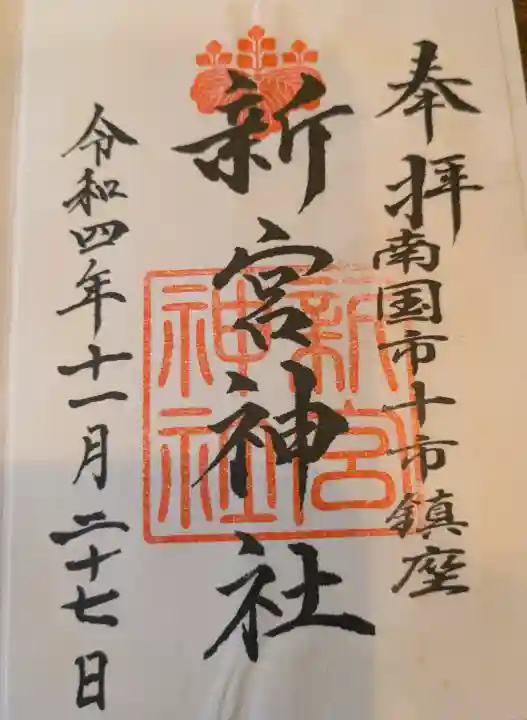 奉拝
南国市十市鎮座
新宮神社
新宮
神社
令和四年十一月二十七日